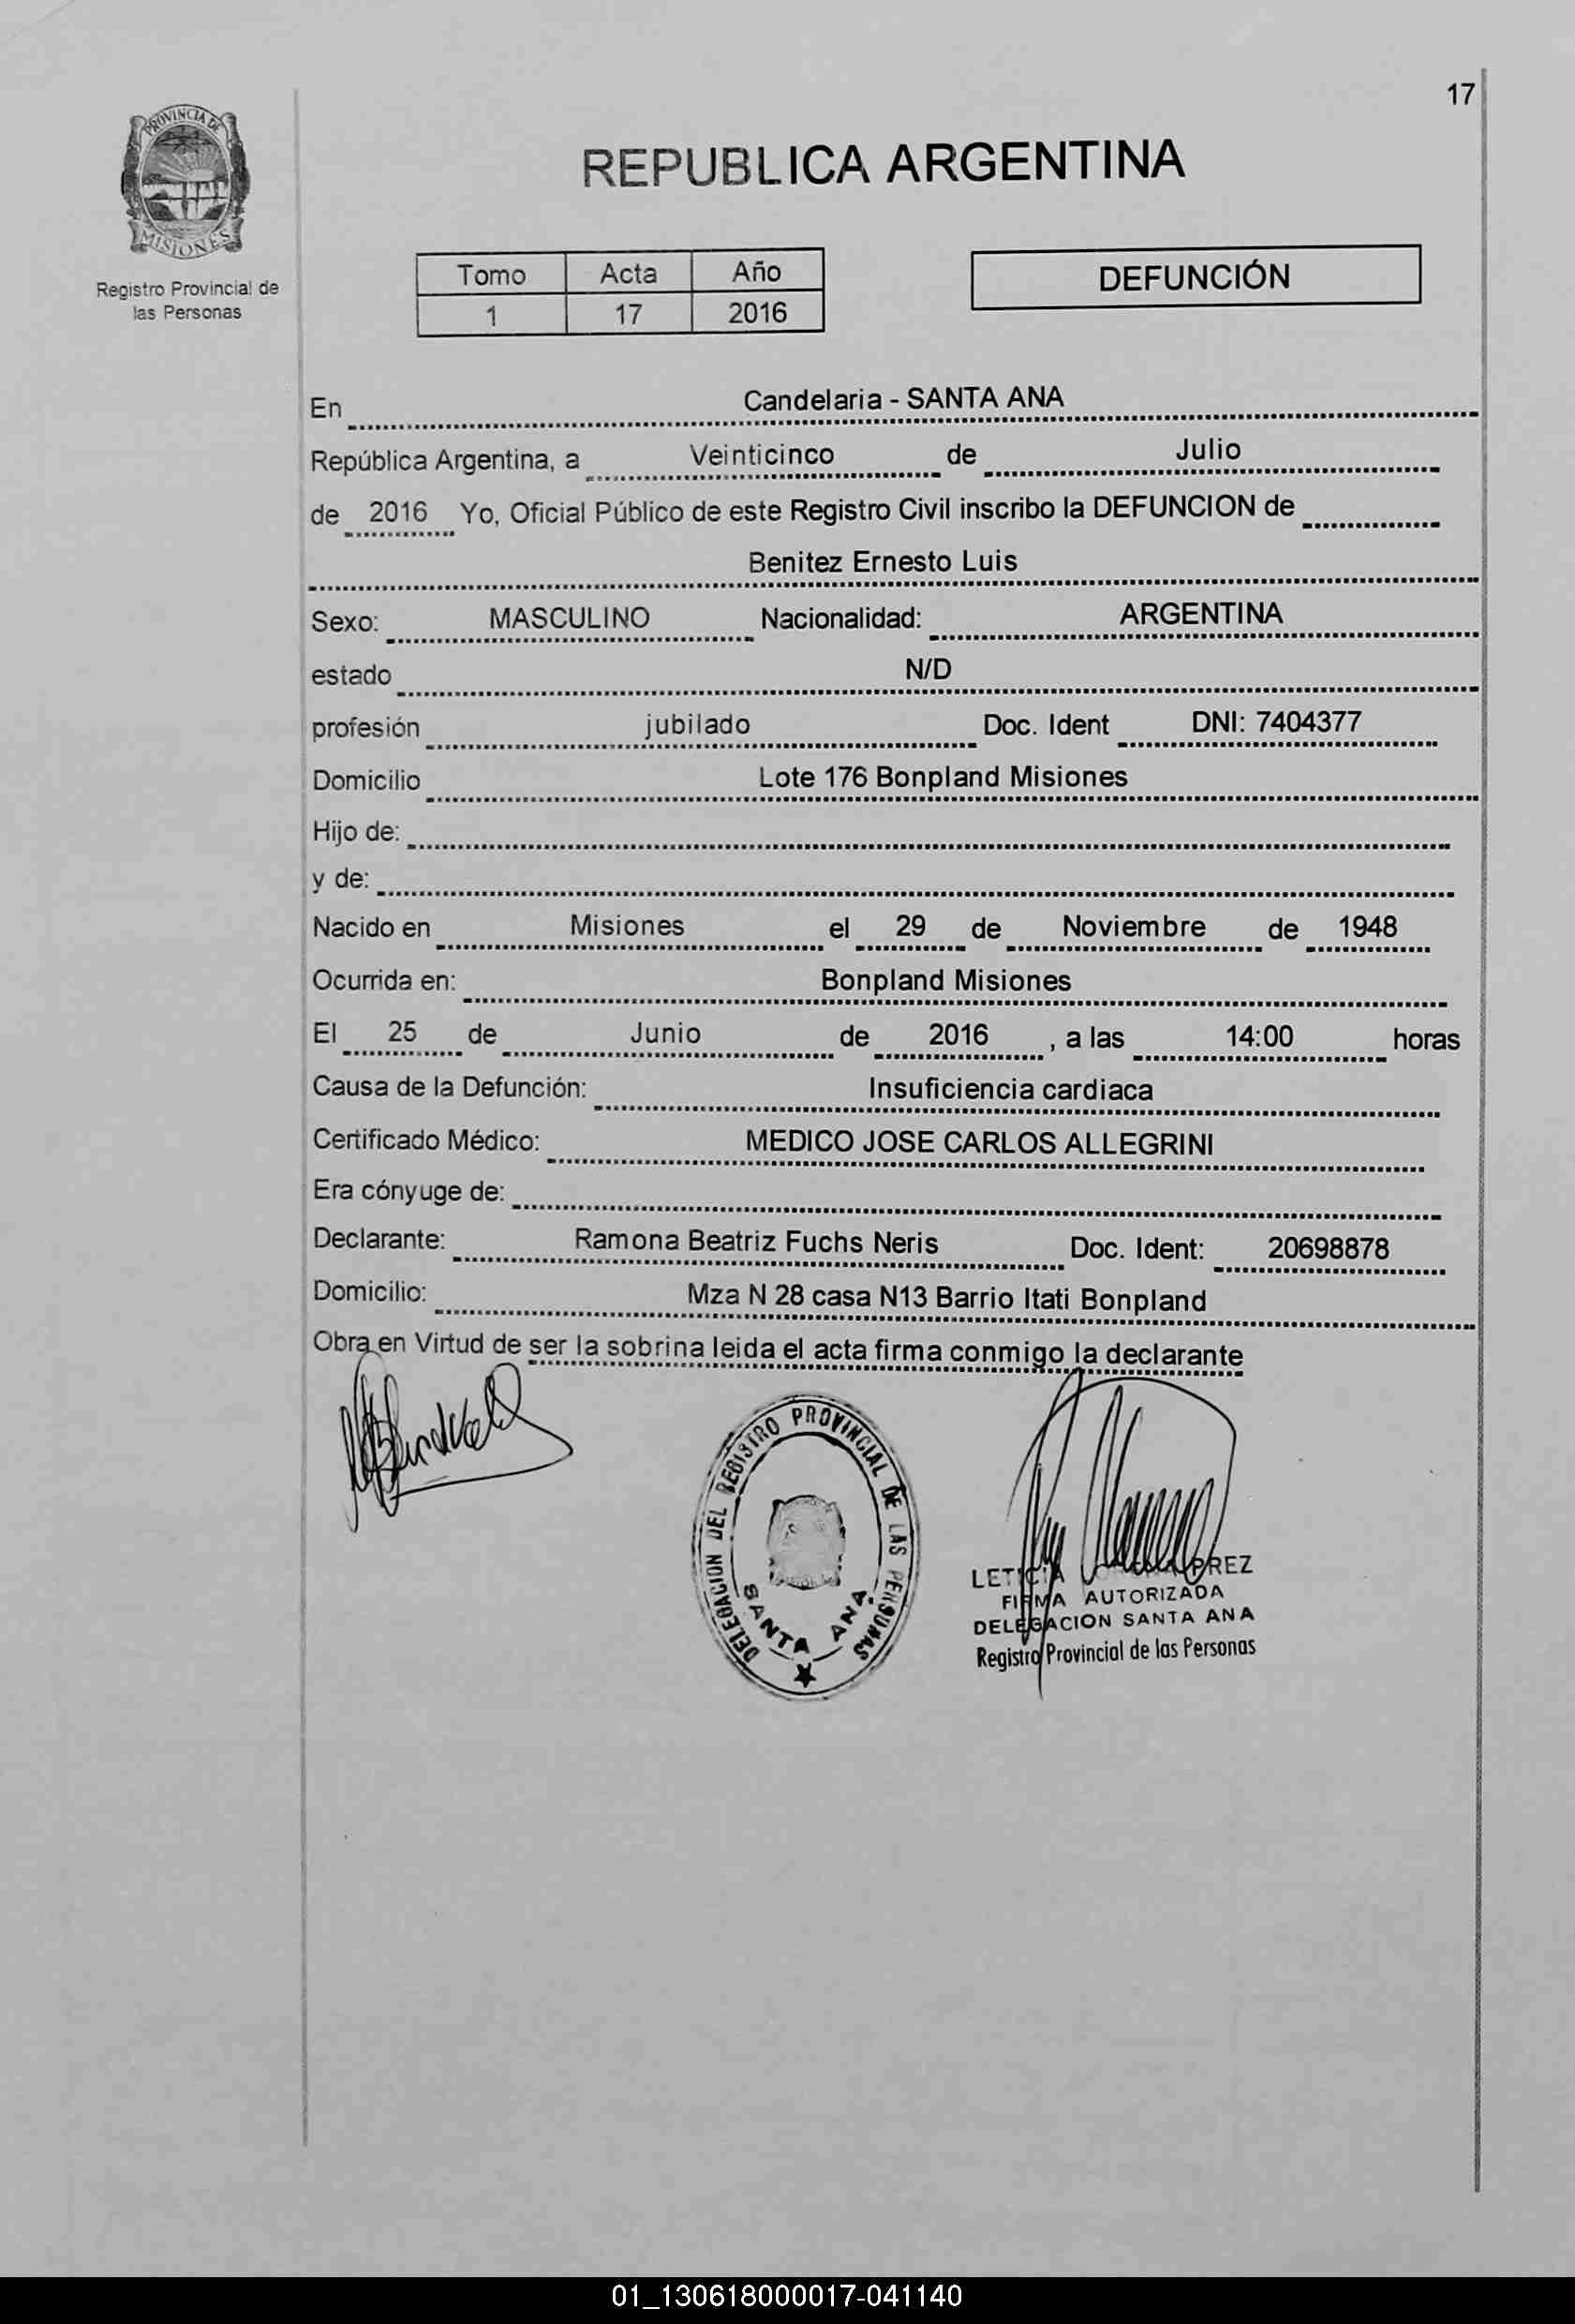 17
PROVINCIA DE
MISIONES
Registro Provincial de
las Personas
REPUBLICA ARGENTINA
Tomo Acta Año
1 17 2016
DEFUNCIÓN
En Candelaria - SANTA ANA
República Argentina, a Veinticinco de Julio
de 2016 Yo, Oficial Público de este Registro Civil inscribo la DEFUNCION de
Benitez Ernesto Luis
Sexo: MASCULINO Nacionalidad: ARGENTINA
estado N/D
profesión jubilado Doc. Ident DNI: 7404377
Domicilio Lote 176 Bonpland Misiones
Hijo de:
y de:
Nacido en Misiones el 29 de Noviembre de 1948
Ocurrida en: Bonpland Misiones
El 25 de Junio de 2016 , a las 14:00 horas
Causa de la Defunción: Insuficiencia cardiaca
Certificado Médico: MEDICO JOSE CARLOS ALLEGRINI
Era cónyuge de:
Declarante: Ramona Beatriz Fuchs Neris Doc. Ident: 20698878
Domicilio: Mza N 28 casa N13 Barrio Itati Bonpland
Obra en Virtud de ser la sobrina leida el acta firma conmigo la declarante
DELEGACION DEL REGISTRO PROVINCIAL DE LAS PERSONAS
SANTA ANA
LETICIA
FIRMA AUTORIZADA
DELEGACION SANTA ANA
Registro Provincial de las Personas
01_130618000017-041140